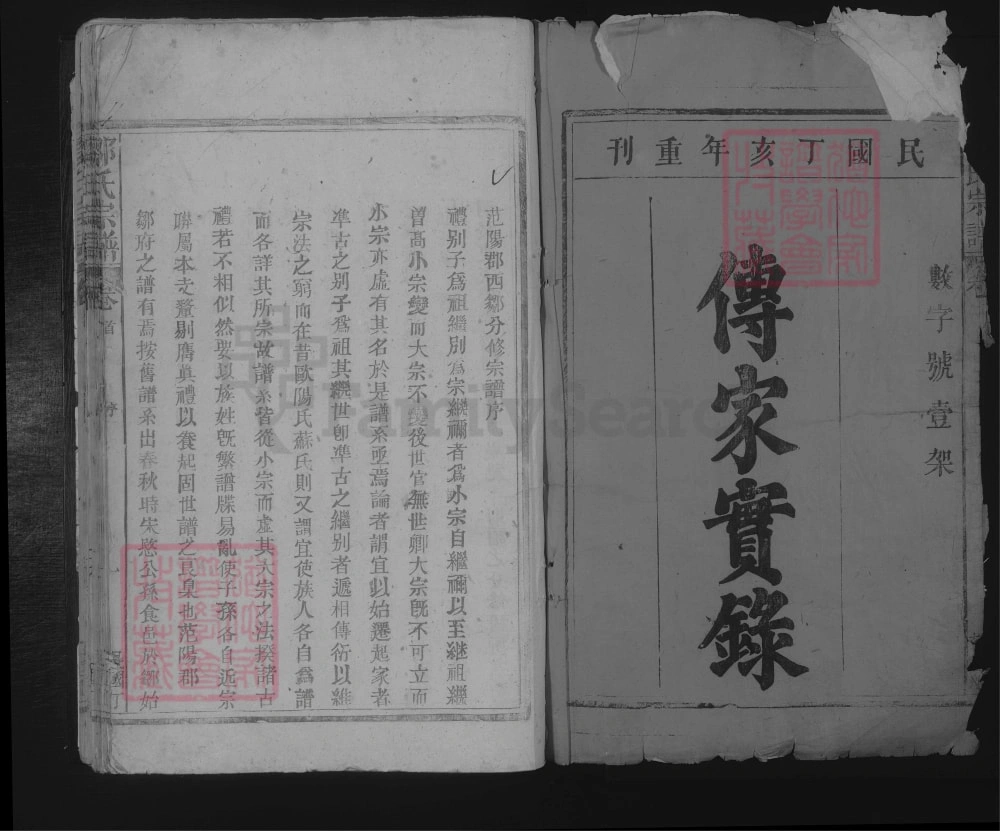 民國丁亥年重刊
數字號壹架
傳家實錄
范陽郡西鄒分修宗譜序
禮别子爲祖繼别為宗繼禰者爲小宗自繼禰以至継祖繼
曾高小宗變而大宗不變後世官無世卿大宗旣不可立而
小宗亦虛有其名於是譜系重焉論者謂宜以始遷起家者
準古之别子爲祖其繼世卽準古之繼别者遞相傳衍以維
宗法之窮而在昔歐陽氏蘇氏則又謂宜使族人各自爲譜
而各詳其所宗故譜系皆從小宗而虛其大宗之法揆諸古
禮若不相似然要夏族姓旣繁譜牒易亂使子孫各自近宗
聨屬本支釐剔膺眞禮以義起固世譜之良臬也范陽郡
鄒府之譜有焉按舊譜系出春秋時宋愍公孫食邑於鄒始
鄒氏宗譜
卷首
序
FamilySearch